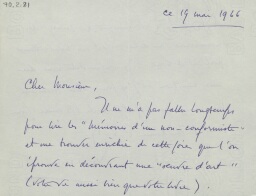 ce 19 mai 1966
Cher Monsieur,
Il ne m'a pas fallu longtemps
pour lire les "Mémoires d'un non-conformiste"
et me trouver enrichie de cette joie que l'on
éprouve en découvrant une "œuvre d'art"
(votre vie aussi bien que votre livre).